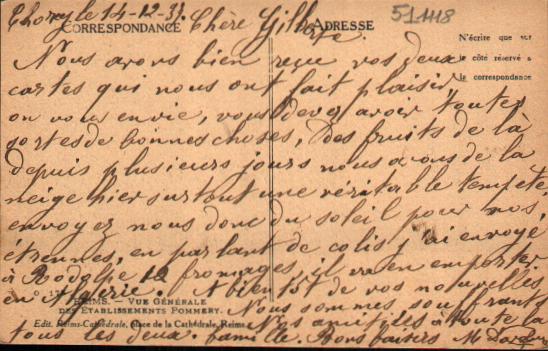 Choisy le 14-12-33. Chère Gilberte.
51418
CORRESPONDANCE
ADRESSE
N'écrire que sur
le côté réservé à
la correspondance
Nous avons bien reçu vos deux
cartes qui nous ont fait plaisir,
on vous envie, vous devez avoir toutes
sortes de bonnes choses, des fruits de là
depuis plusieurs jours nous avons de la
neige hier surtout une véritable tempête
envoyez nous donc du soleil pour nos
étrennes, en parlant de colis j'ai envoyé
à Rodolphe 12 fromages, il va en emporter
en Algérie. A bientôt de vos nouvelles,
REIMS. — VUE GÉNÉRALE
DES ÉTABLISSEMENTS POMMERY.
Nous sommes souffrants
Edit. Reims-Cathédrale, place de la Cathédrale, Reims
tous les deux. Nos amitiés à toute la
famille. Bons baisers M